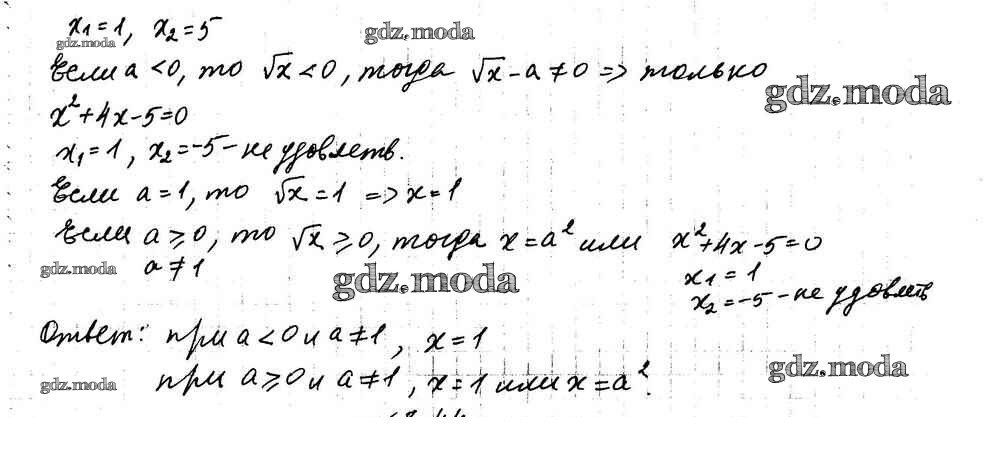 x₁=1, x₂=5
gdz.moda gdz.moda
Если a<0, то √x<0, тогда √x-a≠0 => только
gdz.moda
x²+4x-5=0
x₁=1, x₂=-5-не удовлетв.
Если a=1, то √x=1 => x=1
Если a≥0, то √x≥0, тогда x=a² или x²+4x-5=0
gdz.moda a≠1 gdz.moda x₁=1
x₂=-5-не удовлетв
Ответ: при a<0 и a≠1, x=1
gdz.moda
gdz.moda при a≥0 и a≠1, x=1 или x=a².